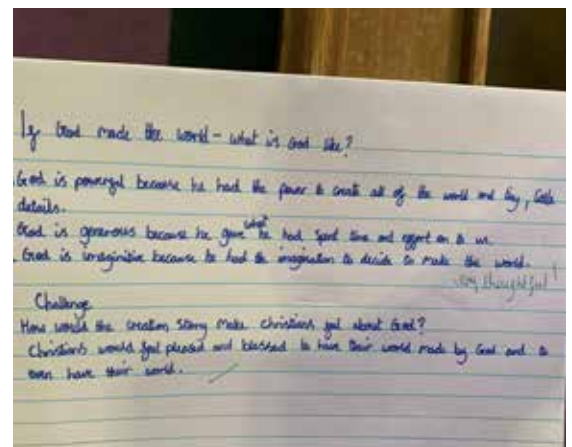 If God made the world - what is God like?
God is powerful because he had the power to create all of the world and tiny, little
details.
God is generous because he gave what he had spent time and effort on to us.
God is imaginitive because he had the imagination to decide to make the world.
very thoughtful!
Challenge
How would the creation story make christians feel about God?
Christians would feel pleased and blessed to have their world made by God and to
even have their world.